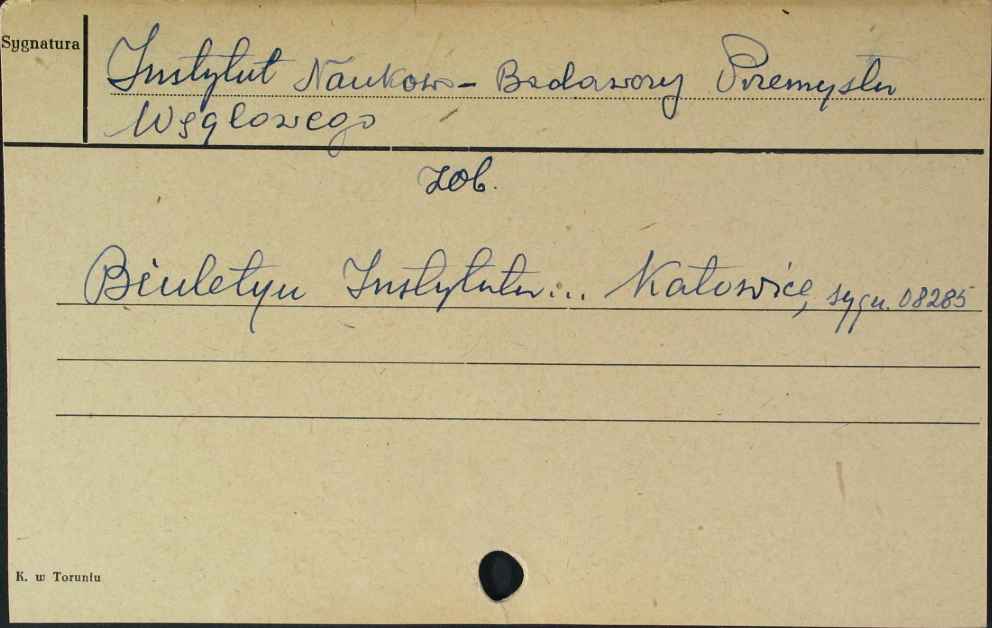 Sygnatura
Instytut Naukowo-Badawczy Przemysłu
Węglowego
zob.
Biuletyn Instytutu... Katowice, sygn. 08285
K. w Toruniu